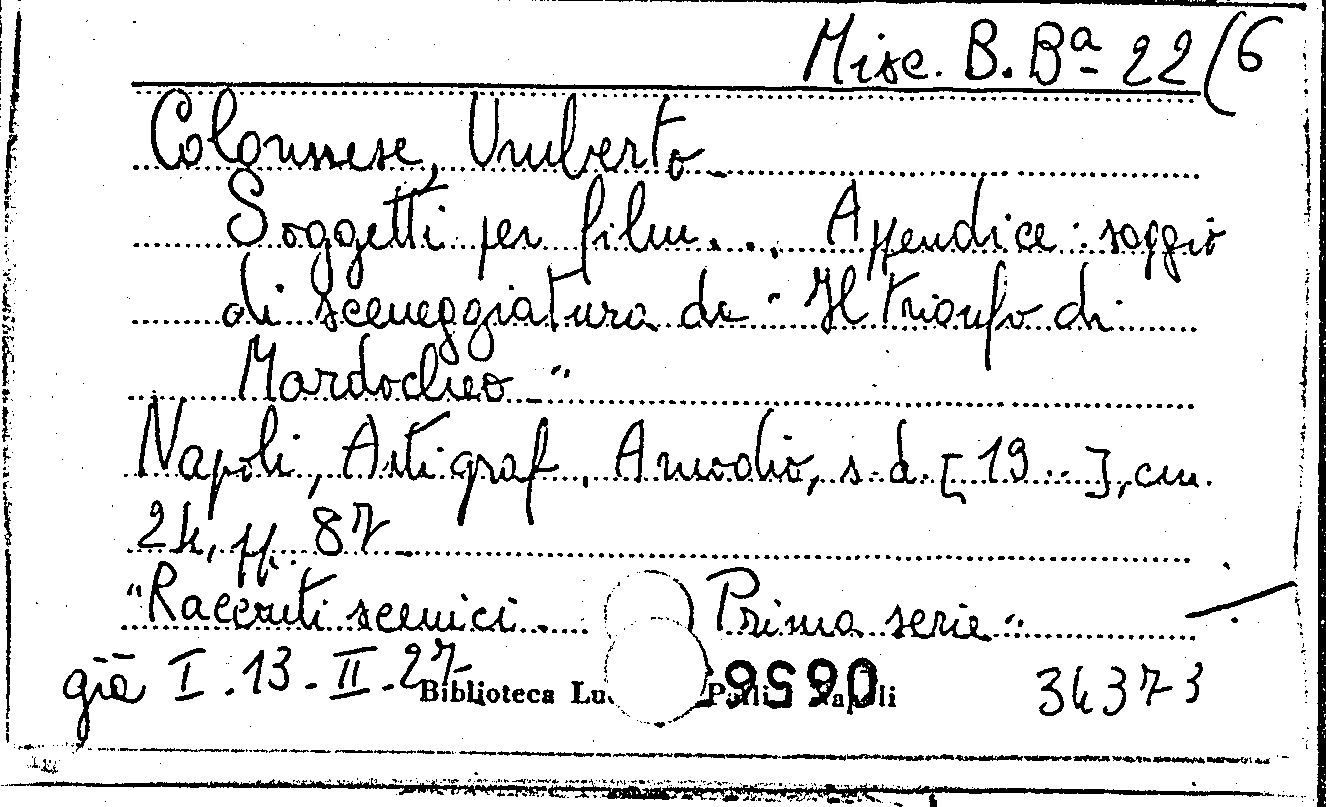 Misc. B. Bª 22/6
Colonnese, Umberto
Soggetti per film... Appendice: saggio
di sceneggiatura da "Il trionfo di
Mardocheo"
Napoli, Arti graf. Amodio, s.d. [19..], cm.
24, pp. 87
"Racconti scenici. Prima serie".
già I.13-II.27
Biblioteca Lu Napoli
34373